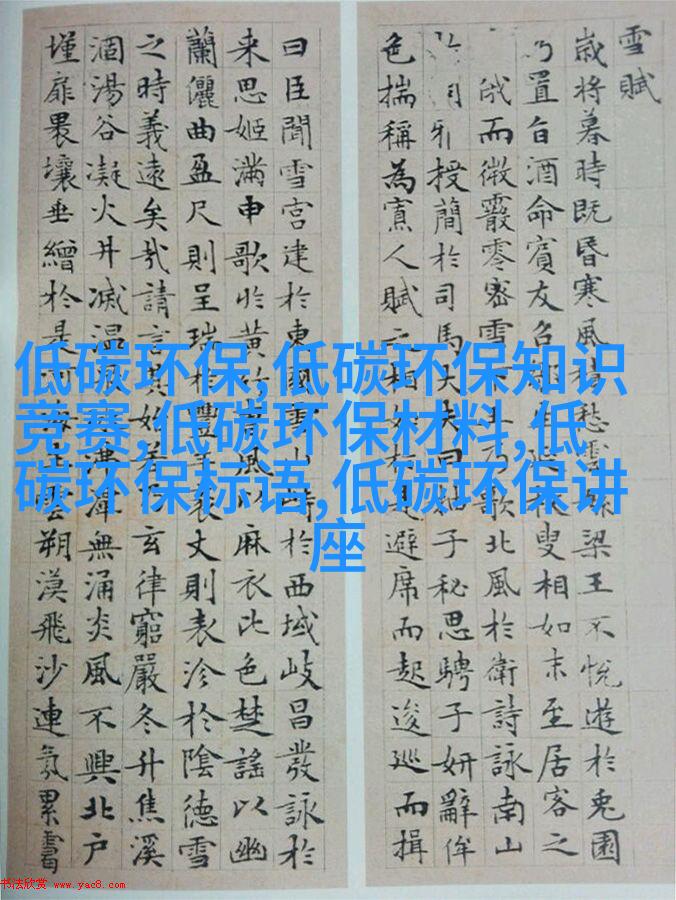 雪賦
歲将暮時既昏寒風積愁雲梁王不悅遊於兎園
乃置旨酒命賓友召生延枚叟相如末至居客之
俄而微霰零密雪下王乃歌北風於衛詩詠南山
雅授簡於司馬大夫曰抽子秘思騁子妍辭侔
色揣稱為寡人賦之相如於是避席而起逡巡而揖
曰臣聞雪宮建於東國雪山峙於西域岐昌發詠於
来思姬滿申歌於黃竹曹風以麻衣比色楚謠以幽
蘭儷曲盈尺則呈瑞於豐年袤丈則表沴於陰德雪
之時義遠矣哉請言其始若乃玄律窮嚴冬升焦溪
涸湯谷凝火井滅温潭無涌炎風不興北户
墐扉壤垂繒於是河海生雲朔漠飛沙連氛累靄
低碳环保,低碳环保知识
竞赛,低碳环保材料,低
碳环保标语,低碳环保讲
座
书法欣赏 www.yac8.com